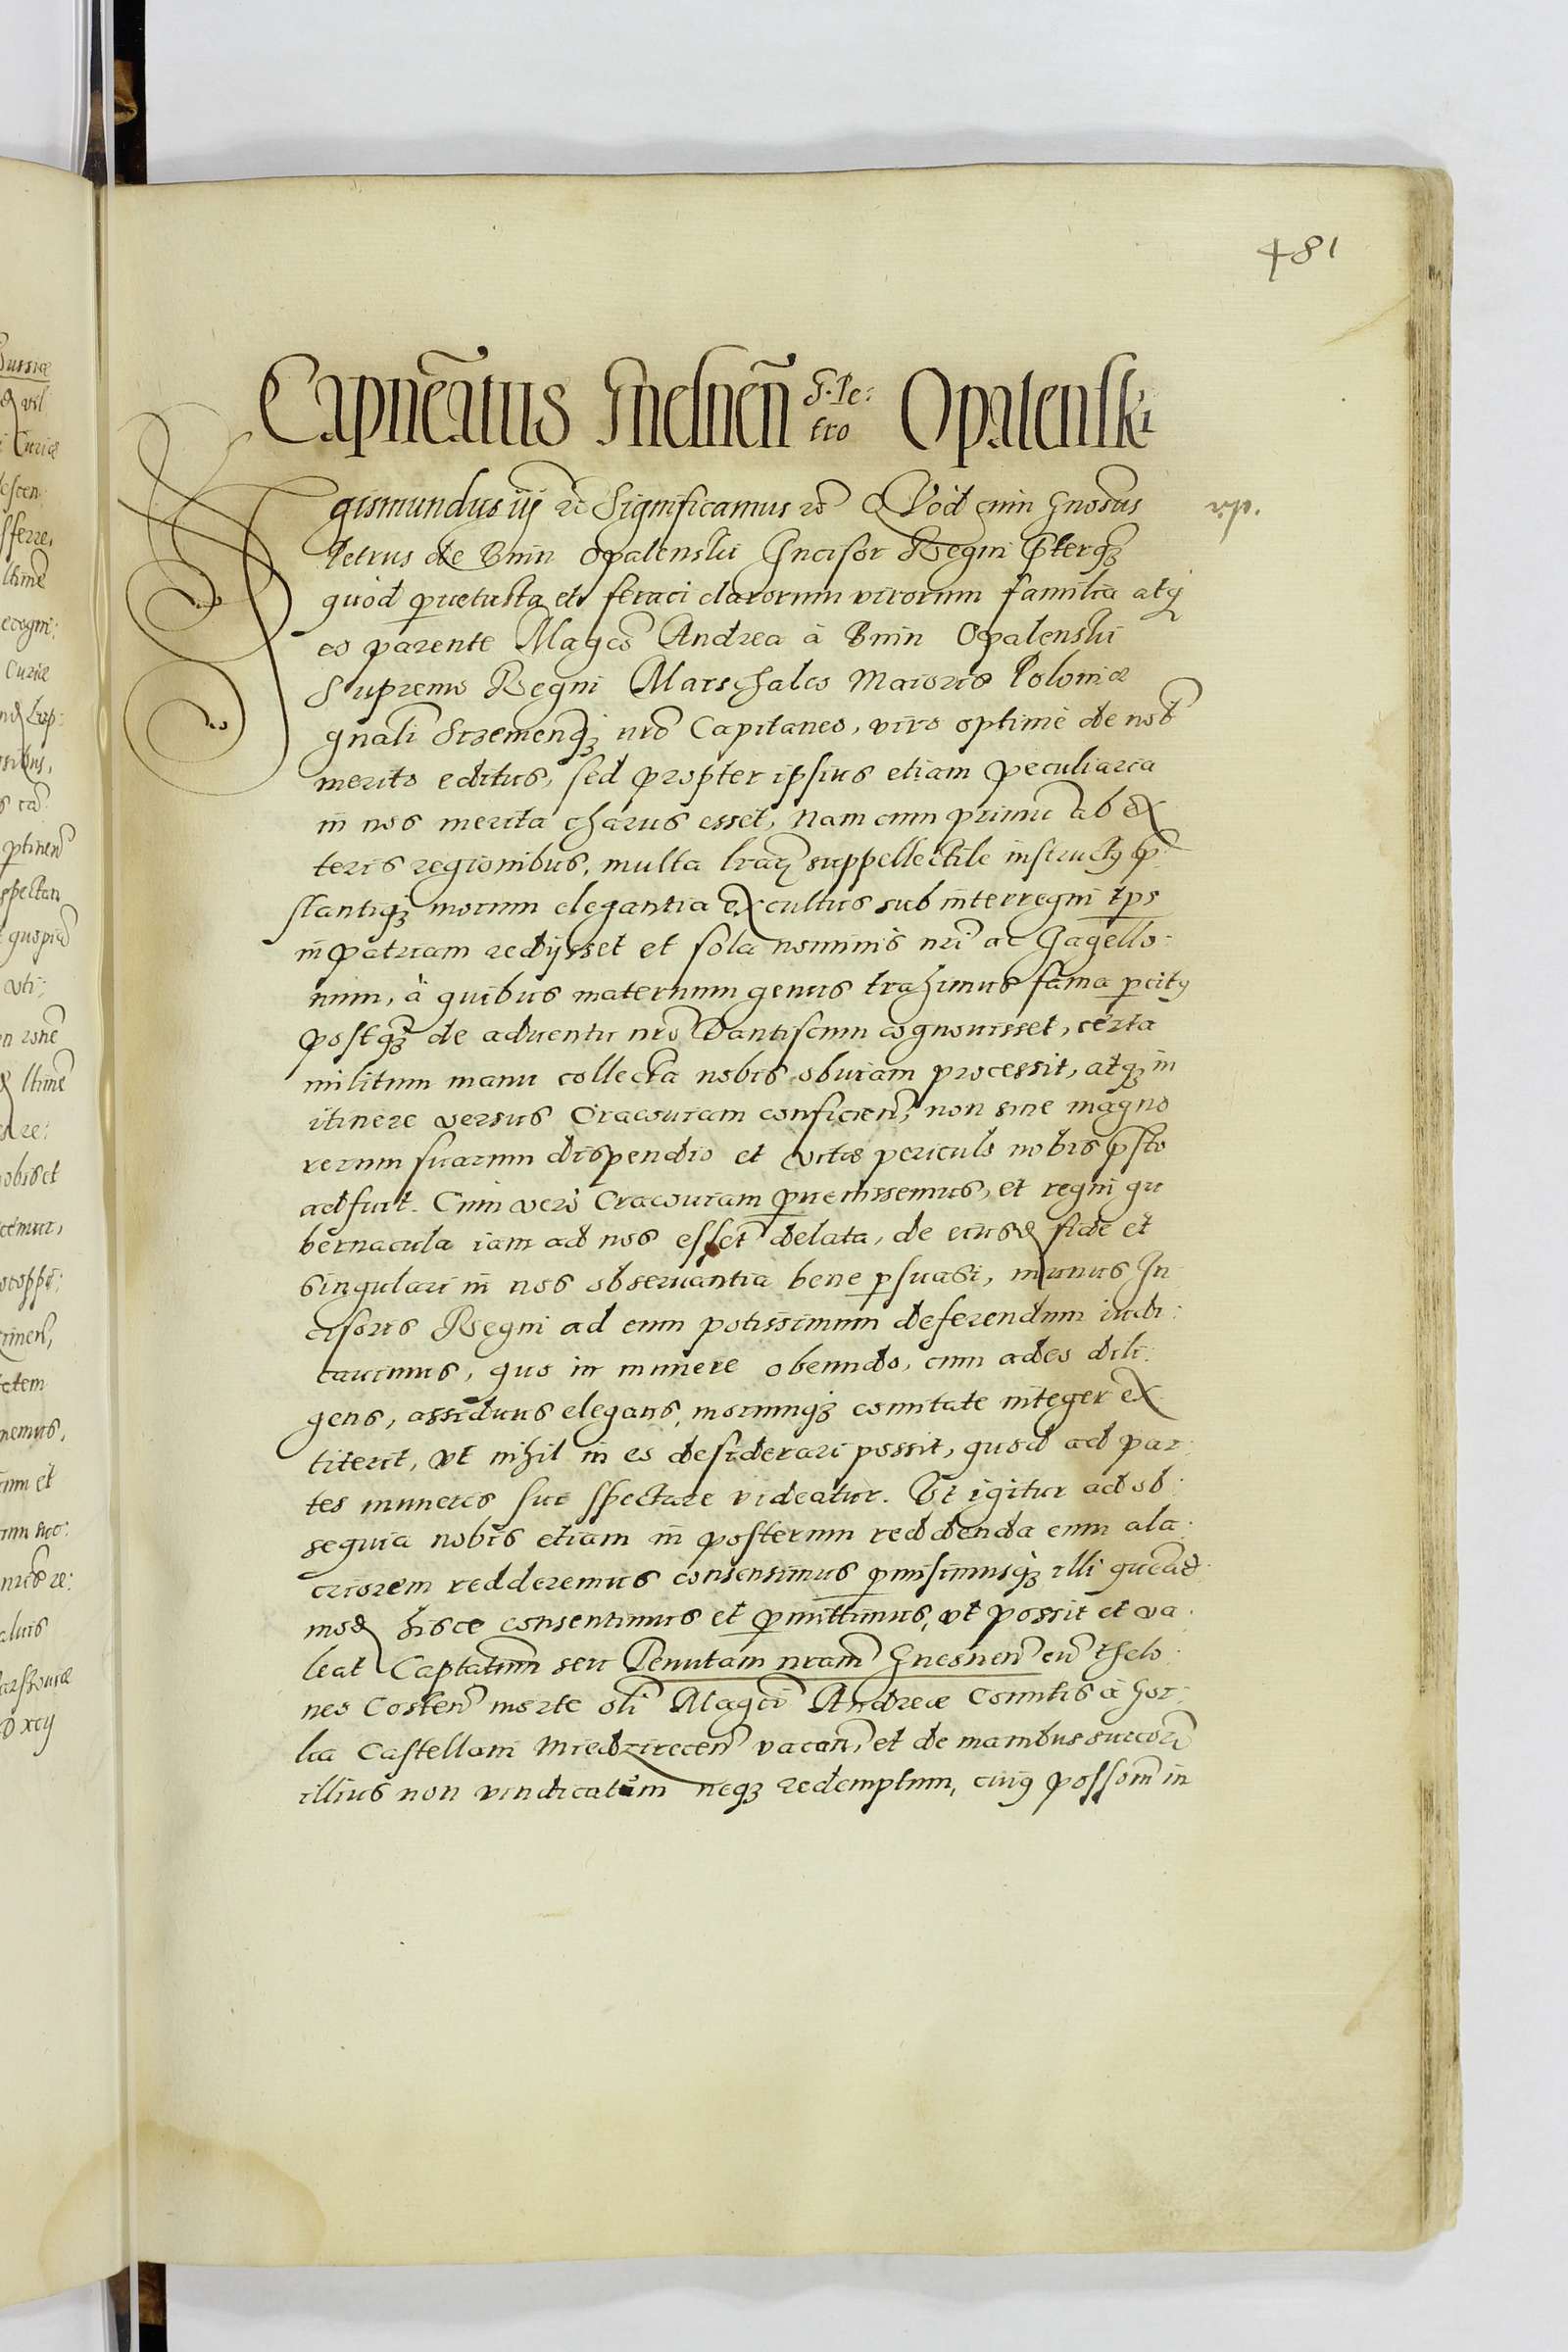 481
Capnẽatus Gnesneñ G. Pe: tro Opalenski
Sigismundus iij rc Significamus rc Quod cum Gnosus
Petrus de Bnin Opalenski Incisor Regni Pterq3
quòd pervetusta et feraci clarorum virorum familia atq3
eo parente Magco Andrea à Bnin Opalenski
Supremo Regni Marschalco Maioris Poloniæ
gnali Sremenq3 nro Capitaneo, viro optimè de nob
merito editus, sed propter ipsius etiam peculiaria
in nos merita charus esset, Nam cum primu ab ex
teris regionibus, multa lrarum suppellectile instructq P
stantiq3 morum elegantia excultus sub interregni tps
in patriam redijsset et sola nominis nri ac Jagello:
num, à quibus maternum genus trahimus fama pcitq
postq3 de aduentu nro Dantiscum cognouisset, certa
militum manu collecta nobis obuiam processit, atq3 in
itinere versus Cracouiam conficien, non sine magno
rerum suarum dispendio et vitæ periculo nobis psto
adfuit. Cum verò Cracouiam peruenissemus, et regni gu
bernacula iam ad nos essent delata, de eiusd fide et
singulari in nos obseruantia bene psuasi, munus In
cisoris Regni ad eum potissimum deferendum iudi:
cauimus, quo in munere obeundo, cum adeo dili:
gens, assiduus elegans, morumq3 comitate integer ex
titerit, vt nihil in eo desiderari possit, quod ad par
tes muneris sui spectare videatur. Vt igitur ad ob:
sequia nobis etiam in posterum reddenda eum ala:
criorem redderemus consensimus pmisimusq3 illi quead
mod hisce consentimus et pmittimus, vt possit et va:
leat Captatum seu Tenutam nram Gnesnen cu thelo:
neo Costen morte oli Magci Andreæ Comitis à Gor:
ka Castellani Miedzirecen vacan, et de manibus succorum
illius non vindicatum neq3 redemptum, cuiq possom in